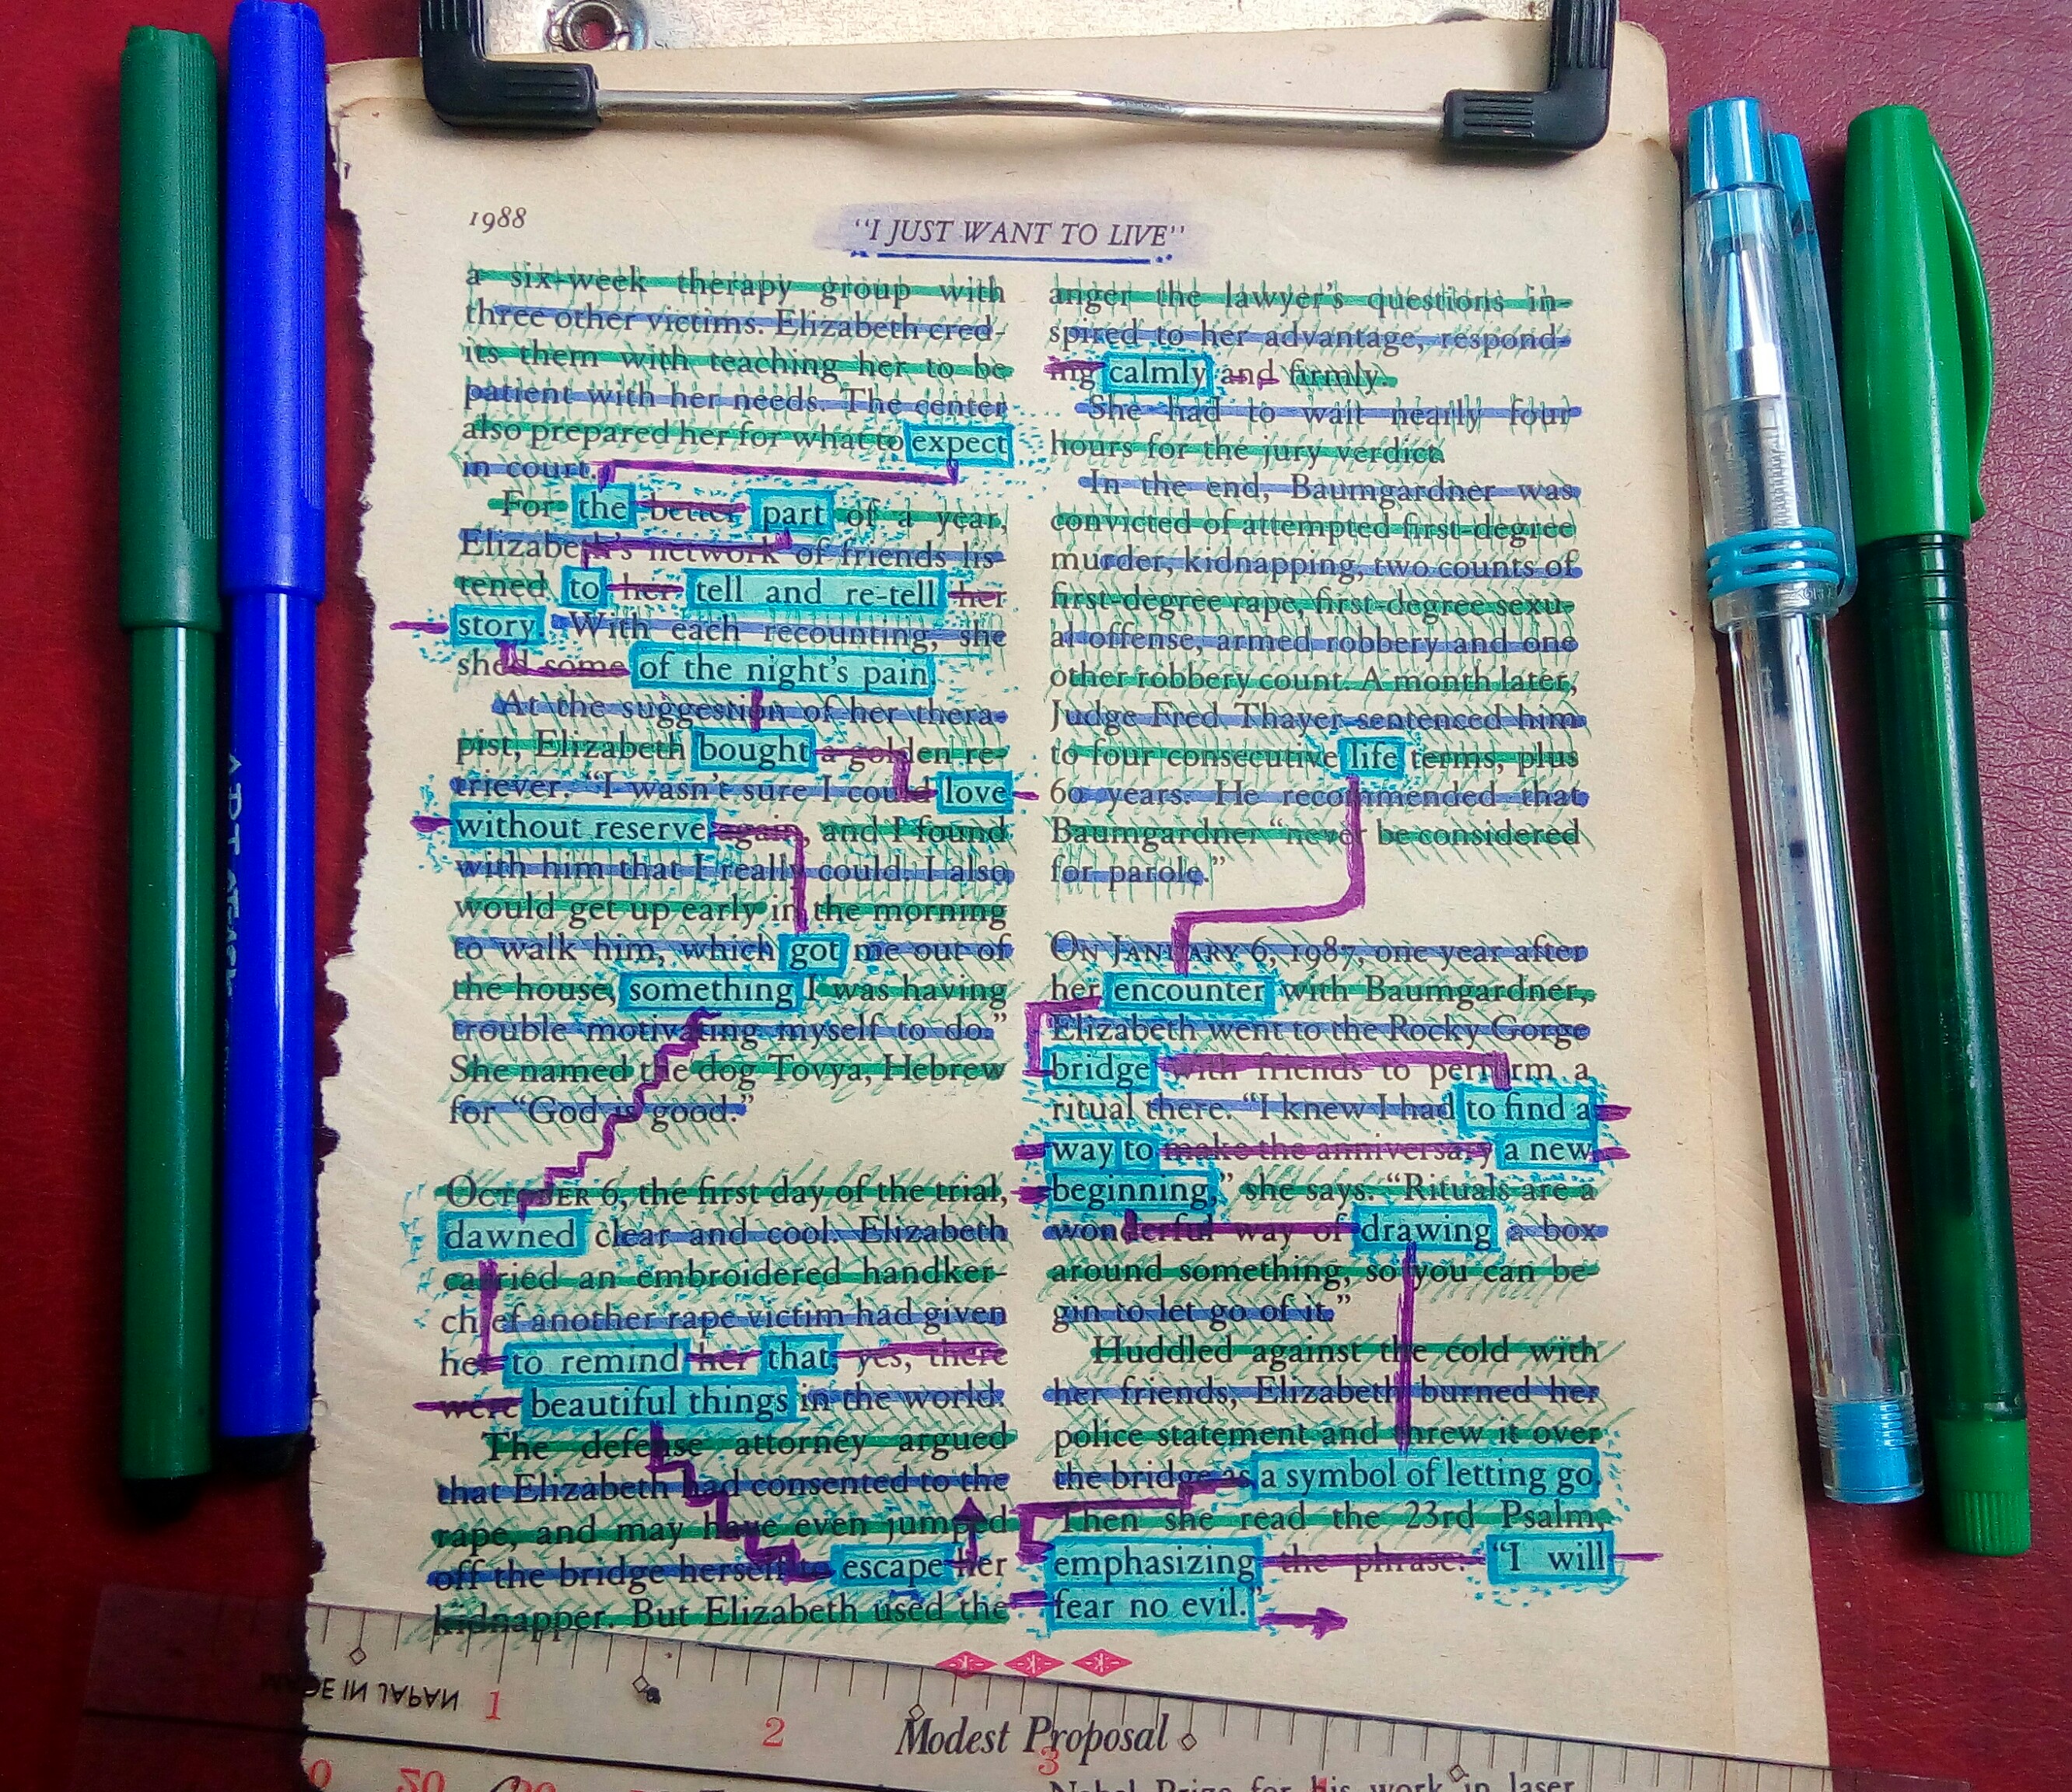 1988
"I JUST WANT TO LIVE"
a six-week therapy group with
three other victims. Elizabeth cred-
its them with teaching her to be
patient with her needs. The center
also prepared her for what to expect
in court.
For the better part of a year,
Elizabeth's network of friends lis-
tened to her tell and re-tell her
story. With each recounting, she
shed some of the night's pain.
At the suggestion of her thera-
pist, Elizabeth bought a golden re-
triever. "I wasn't sure I could love
without reserve again, and I found
with him that I really could. I also
would get up early in the morning
to walk him, which got me out of
the house, something I was having
trouble motivating myself to do."
She named the dog Tovya, Hebrew
for "God is good."
OCTOBER 6, the first day of the trial,
dawned clear and cool. Elizabeth
carried an embroidered handker-
chief another rape victim had given
her to remind her that, yes, there
were beautiful things in the world.
The defense attorney argued
that Elizabeth had consented to the
rape, and may have even jumped
off the bridge herself to escape her
kidnapper. But Elizabeth used the
anger the lawyer's questions in-
spired to her advantage, respond-
ing calmly and firmly.
She had to wait nearly four
hours for the jury verdict.
In the end, Baumgardner was
convicted of attempted first-degree
murder, kidnapping, two counts of
first-degree rape, first-degree sexu-
al offense, armed robbery and one
other robbery count. A month later,
Judge Fred Thayer sentenced him
to four consecutive life terms, plus
60 years. He recommended that
Baumgardner "never be considered
for parole."
ON JANUARY 6, 1987, one year after
her encounter with Baumgardner,
Elizabeth went to the Rocky Gorge
bridge with friends to perform a
ritual there. "I knew I had to find a
way to make the anniversary a new
beginning," she says. "Rituals are a
wonderful way of drawing a box
around something, so you can be-
gin to let go of it."
Huddled against the cold with
her friends, Elizabeth burned her
police statement and threw it over
the bridge as a symbol of letting go.
Then she read the 23rd Psalm,
emphasizing the phrase: "I will
fear no evil."
MADE IN JAPAN
1 2 3
Modest Proposal
Nobel Prize for his work in laser